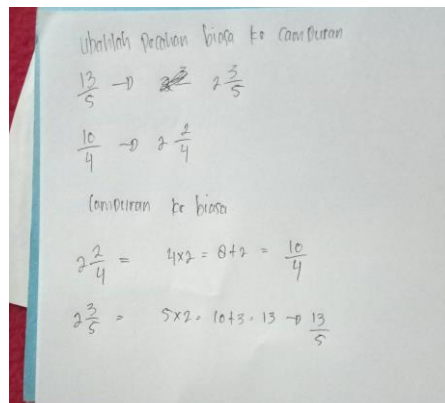 Ubahlah pecahan biasa ke campuran
13/5 → 2 3/5
10/4 → 2 2/4
Campuran ke biasa
2 2/4 = 4x2 = 8+2 = 10/4
2 3/5 = 5x2 = 10+3 = 13 → 13/5